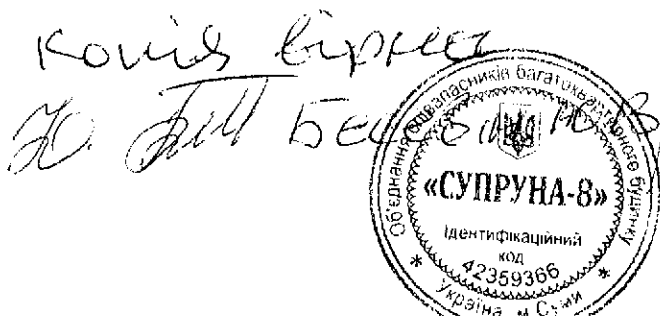 Копія вірна
Ю.
Об'єднання співвласників багатоквартирного будинку
«СУПРУНА-8»
Ідентифікаційний
код
42359366
* Україна м. Суми *